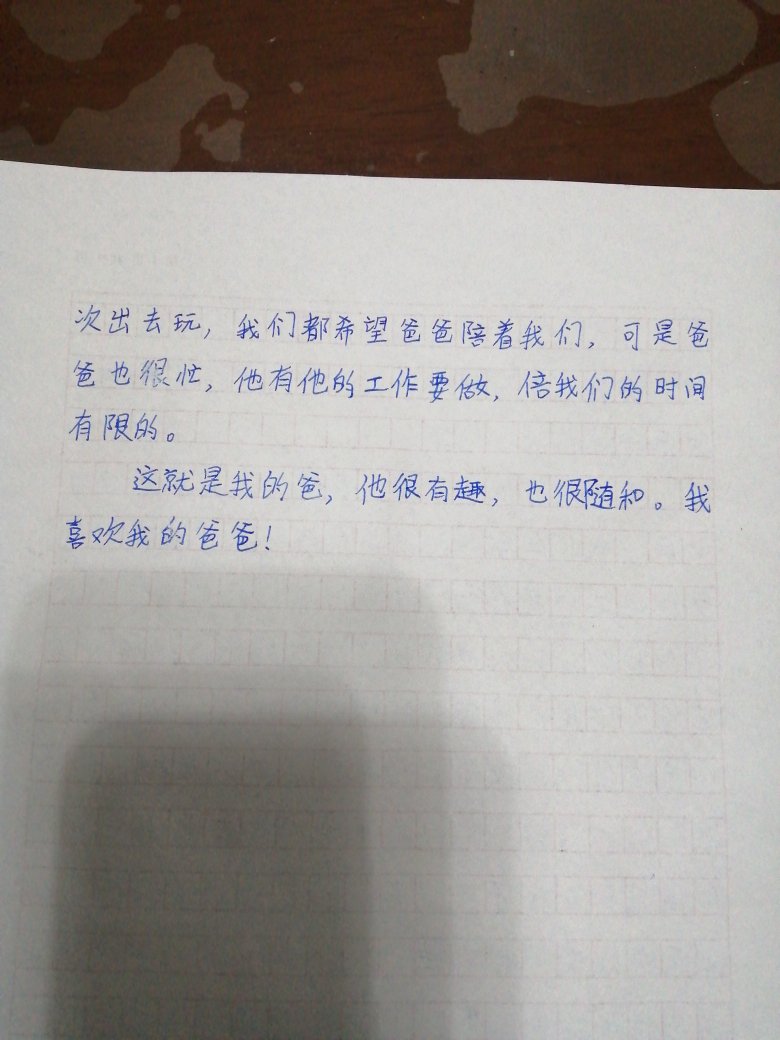 次出去玩，我们都希望爸爸陪着我们，可是爸
爸也很忙，他有他的工作要做，倍我们的时间
有限的。
这就是我的爸，他很有趣，也很随和。我
喜欢我的爸爸！